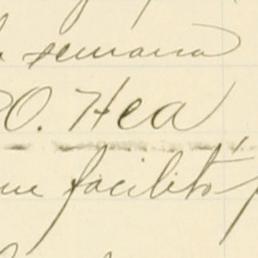 semana
O. Hea
facilito